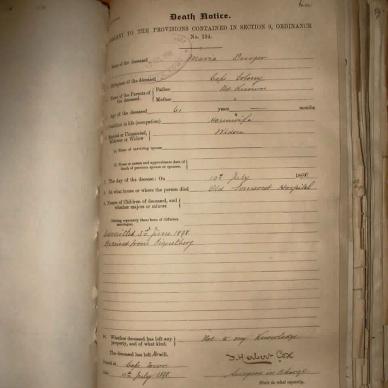 Death Notice.
TO THE PROVISIONS CONTAINED IN SECTION 9, ORDINANCE
No. 104.
Name of the deceased Maria
Birthplace of the deceased Cape Colony
Names of the Parents of the deceased. Father Not Known
Mother "
Age of the deceased 61 years - months
Condition in life (occupation) Housewife
Married or Unmarried, Widower or Widow Widow
(a) Name of surviving spouse
(b) Name or names and approximate date of death of previous spouse or spouses.
7. The day of the decease: On 10th July 1898
8. At what house or where the person died Old Somerset Hospital
9. Names of Children of deceased, and whether majors or minors
Admitted 3rd June 1898
Received from
10. Whether deceased has left any property, and of what kind. Not to my knowledge
The deceased has left
Cape Town
July 1898
Surgeon in Charge